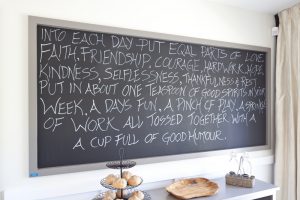 INTO EACH DAY PUT EQAL PARTS OF LOVE,
FAITH, FRIENDSHIP, COURAGE, HARD WORK, HOPE,
KINDNESS, SELFLESSNESS, THANKFULNESS & REST.
PUT IN ABOUT ONE TEASPOON OF GOOD SPIRITS IN YOUR
WEEK, A DAYS FUN, A PINCH OF PLAY, A
OF WORK ALL TOSSED TOGETHER WITH A
A CUP FULL OF GOOD HUMOUR.